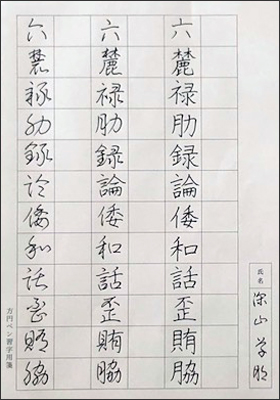 氏名
深山学
六麓禄肋録論倭和話歪賄脇
六麓禄肋録論倭和話歪賄脇
六麓禄肋録論倭和話歪賄脇
方円ペン習字用箋